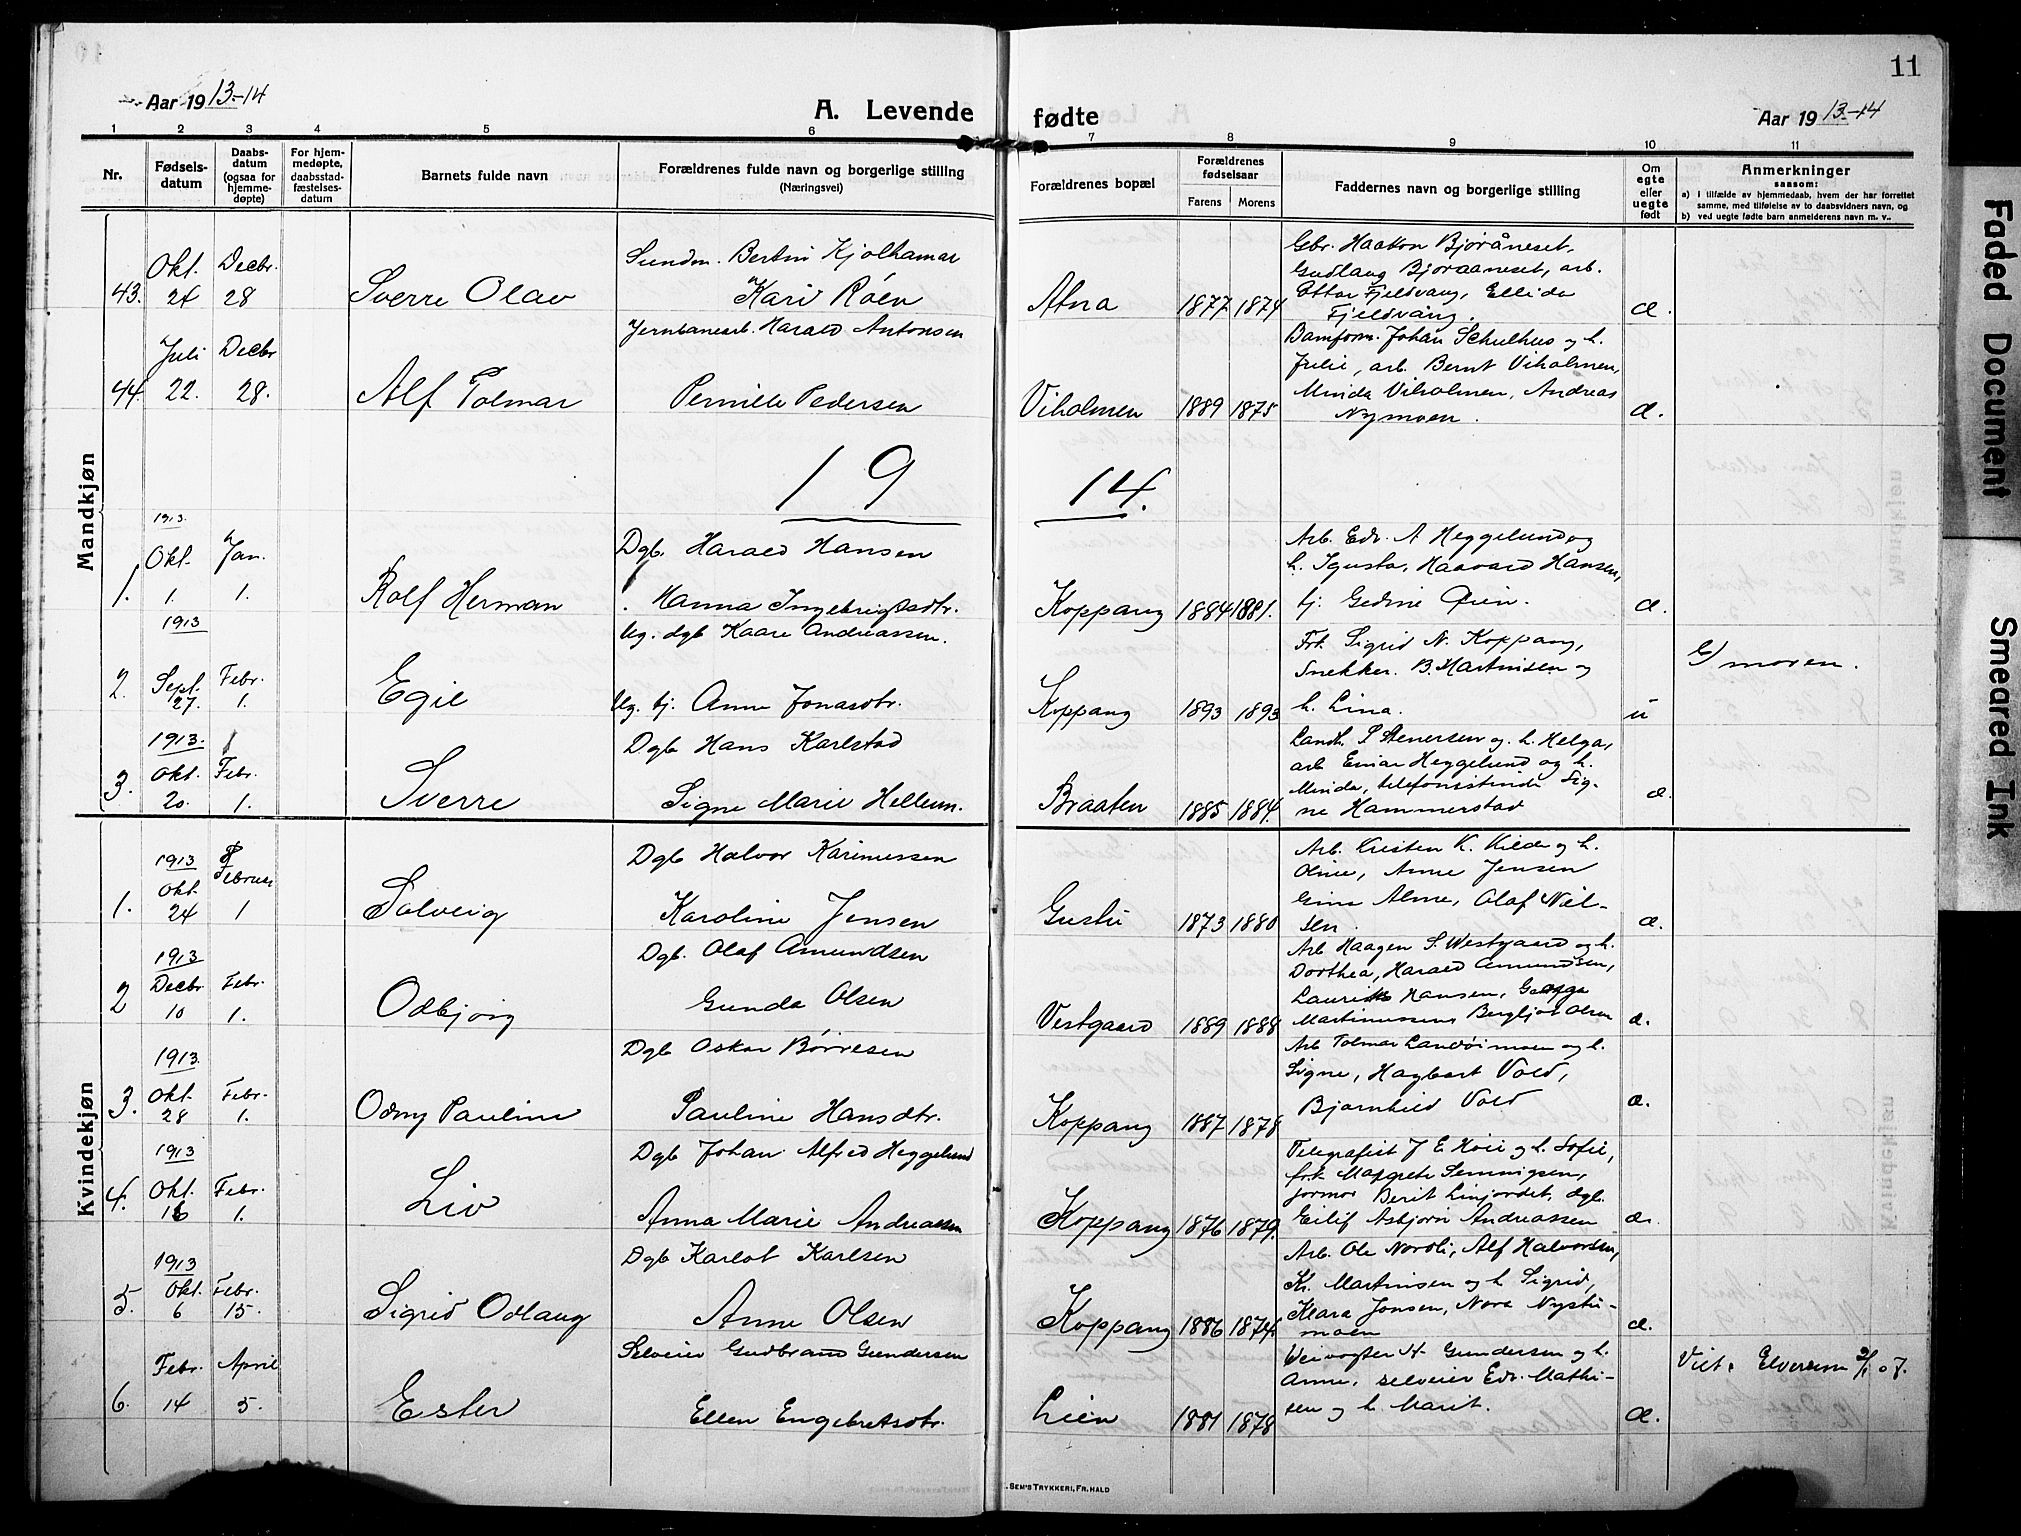 11
Aar 1913.-14
A. Levende
fødte
Aar 1913.-14
1 2 3 4 5 6 7 8 9 10 11
Nr.
Fødsels-
datum
Daabs-
datum
(ogsaa for
hjemme-
døpte)
For hjem-
medøpte,
daabsstad-
fæstelses-
datum
Barnets fulde navn
Forældrenes fulde navn og borgerlige stilling
(Næringsvei)
Forældrenes bopæl
Forældrenes
fødselsaar
Farens Morens
Faddernes navn og borgerlige stilling
Om
egte
eller
uegte
født
Anmerkninger
saasom:
a) i tilfælde av hjemmedaab, hvem der har forrettet
samme, med tilføielse av to daabsvidners navn, og
b) ved uegte fødte barn anmelderens navn m. v.
Mandkjøn
43. Okt. 24 Decbr. 28
Sverre Olav
Bertin Kjølhamar
Kari Røen
Atna 1877 1874
Gbr. Haakon Bjøråneset,
Gudlaug Bjøraaneset, arb.
Ottar Fjeldvang, Ellida
Fjeldvang.
æ.
44. Juli 22. Decbr 28.
Alf Tolmar
Jernbanearb. Harald Antonsen
Pernille Pedersen
Viholmen 1889 1875
Banform. Johan Schulhus og h.
Julie, arb. Bernt Viholmen,
Minda Viholmen, Andreas
Nymoen.
æ.
19
14.
1. 1913. Okt. 1 Jan. 1.
Rolf Herman
Dgb. Harald Hansen
Hanna Ingebrigtsdtr.
Koppang 1884 1881.
Arb. Edv. A Heggelund og
h. Igusta, Haavard Hansen,
tj. Gedine Øien.
æ.
2. 1913 Sept. 27. Febr. 1.
Egil
Ug. dgb Kaare Andreassen.
Ug. tj. Anne Jonasdtr.
Koppang 1893 1893
Frk. Sigrid N. Koppang,
Snekker B. Martinisen og
h. Lina.
u
moren.
3. 1913. Okt. 20. Febr. 1.
Sverre
Dgb Hans Karlstad
Signe Marie Hellum.
Braaten 1885 1884.
Landh. P Stenersen og h. Helga,
arb Einar Heggelund og h.
Minda, telefonistinde Sig-
ne Hammerstad
æ.
Kvindekjøn
1. 1913 Okt. 24 Februar 1
Solveig
Dgb Halvor Rasmussen
Karoline Jensen
Gustu 1873 1880
Arb. Kristen K. Kilde og h.
Oline, Anne Jensen
Alme, Olaf Niel-
sen.
æ.
2 1913 Decbr 10 Febr. 1.
Odbjørg
Dgb. Olaf Amundsen
Gunda Olsen
Vestgaard 1889 1888
Arb Haagen S. Westgaard og h.
Dorthea, Harald Amundsen,
Hansen,
Martinussen, Bergljot Olsen
æ.
3. 1913 Okt. 28 Febr. 1.
Odny Pauline
Dgb Oskar Børresen
Pauline Hansdtr.
Koppang 1887 1878
Arb Tolmar Landøimoen og h.
Signe, Hagbart Vold,
Bjarnhild Vold
æ.
4. 1913 Okt. 16 Febr. 1.
Liv
Dgb Johan Alfred Heggelund
Anna Marie Andreassen
Koppang 1876 1879.
Telegrafist J E Høie og h. Sofie,
frk Margrete Semmigsen,
jormor Berit Linjordet, dgb.
Eilif Asbjørn Andreassen
æ.
5. 1913 Okt. 6 Febr. 15.
Sigrid Odlaug
Dgb Karlot Karlsen
Anne Olsen
Koppang 1886 1874.
Arb. Ole Nordli, Alf Halvorsen,
Kr. Martinsen og h Sigrid,
Klara Jonsen, Nora Nystu-
moen
æ.
6. Febr. 14 April 5.
Ester
Selveier Gudbrand Gundersen
Ellen Engebretsdtr.
Lien 1881 1878
Veivogter H. Gundersen og h.
Anne, selveier Edv. Mathi-
sen og h Marit.
æ.
Viet i Elverum 2/1 07.
SEM'S TRYKKERI, FR.HALD
Faded Document
Smeared Ink